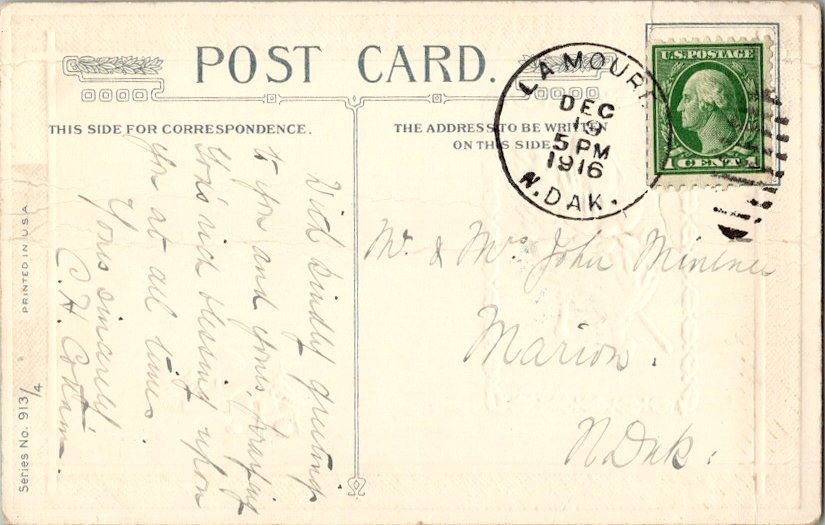 POST CARD.
THIS SIDE FOR CORRESPONDENCE.
THE ADDRESS TO BE WRITTEN
ON THIS SIDE
LAMOURE
DEC
19
5 PM
1916
N. DAK.
U.S. POSTAGE
1 CENT 1
With kindly greetings
to you and yours, praying
God's rich blessing upon
you at all times.
Yours sincerely
C. H.
Mr & Mrs John
Marion.
N Dak.
PRINTED IN U.S.A.
Series No. 913/4